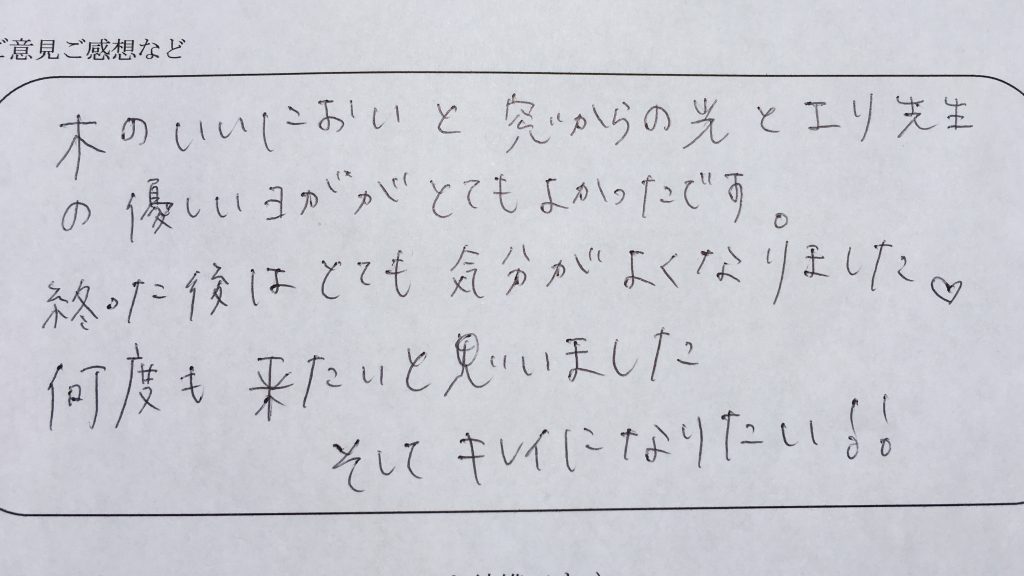 ご意見ご感想など
木のいいにおいと窓からの光とエリ先生
の優しいヨガがとてもよかったです。
終った後はとても気分がよくなりました♡
何度も来たいと思いました
そしてキレイになりたい!!